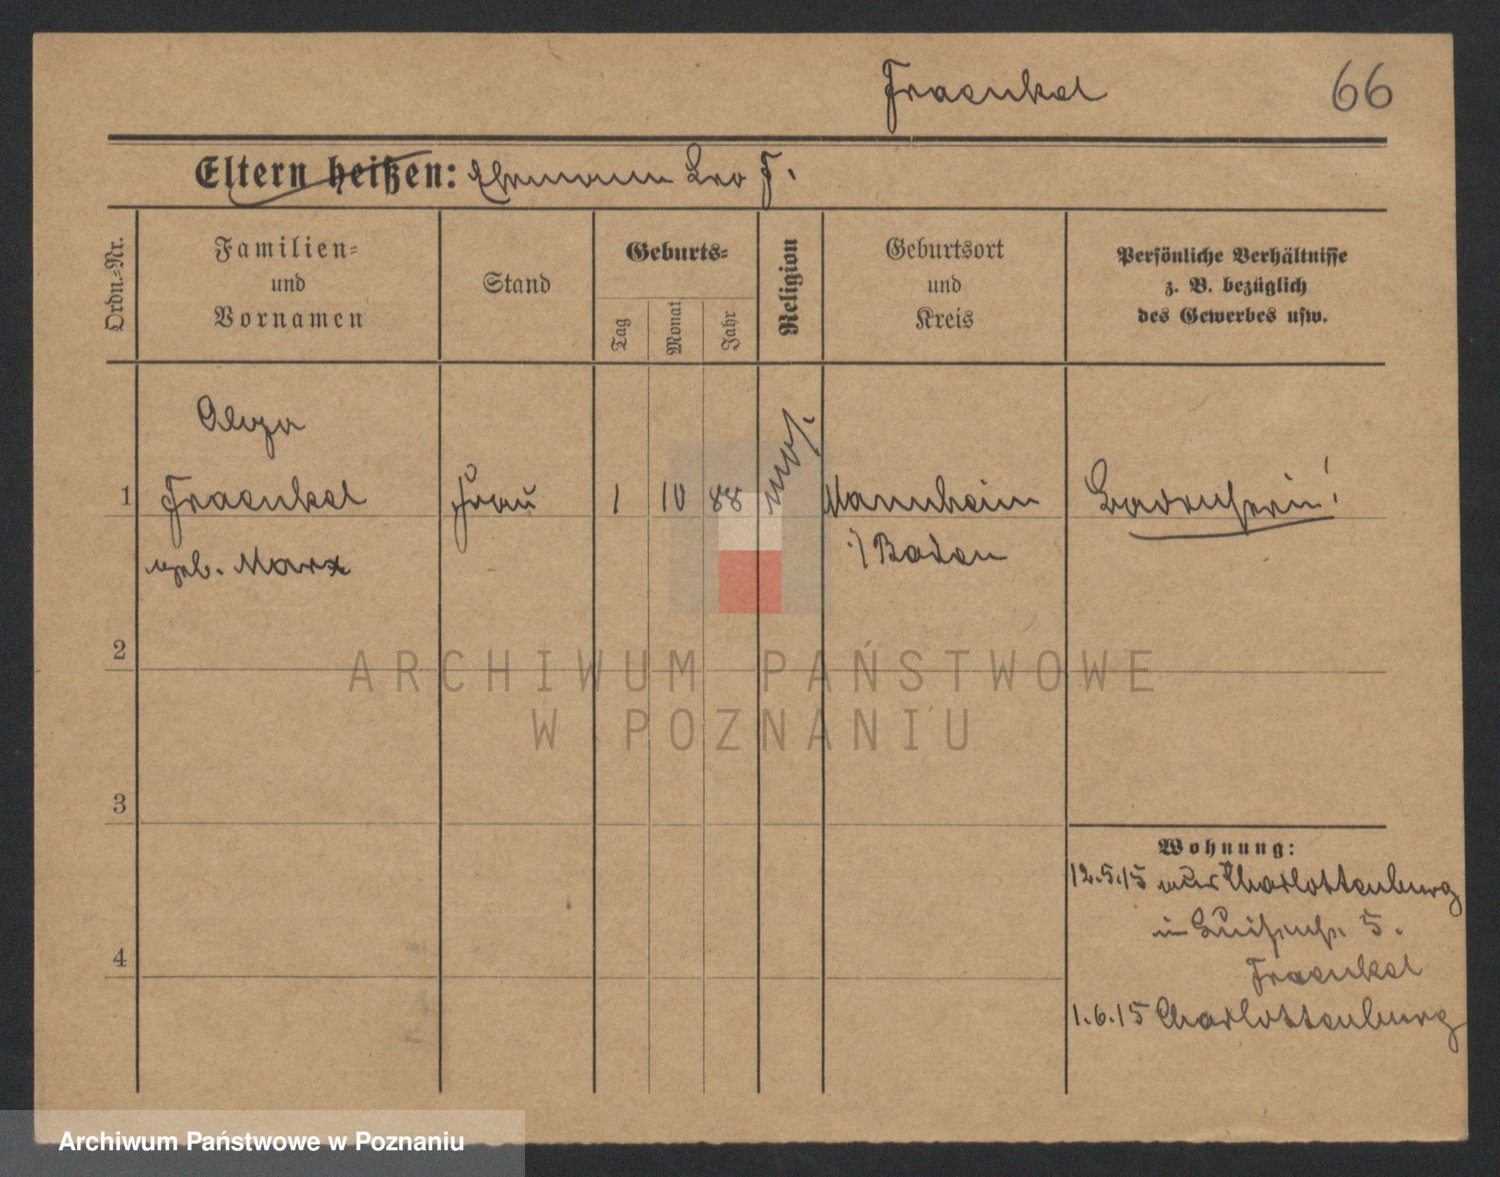 Fraenkel
66
Eltern heißen: Ehemann Leo F.
Ordn.-Nr.
Familien-
und
Vornamen
Stand
Geburts-
Tag
Monat
Jahr
Religion
Geburtsort
und
Kreis
Persönliche Verhältnisse
z. B. bezüglich
des Gewerbes usw.
Olga
1 Fraenkel Frau 1 10 88 mos. Mannheim
geb. Marx
i/ Baden
2
3
4
Wohnung:
12.5.15 aus Charlottenburg
in Luisenstr. 5.
Fraenkel
1.6.15 Charlottenburg
ARCHIWUM PAŃSTWOWE
W POZNANIU
Archiwum Państwowe w Poznaniu